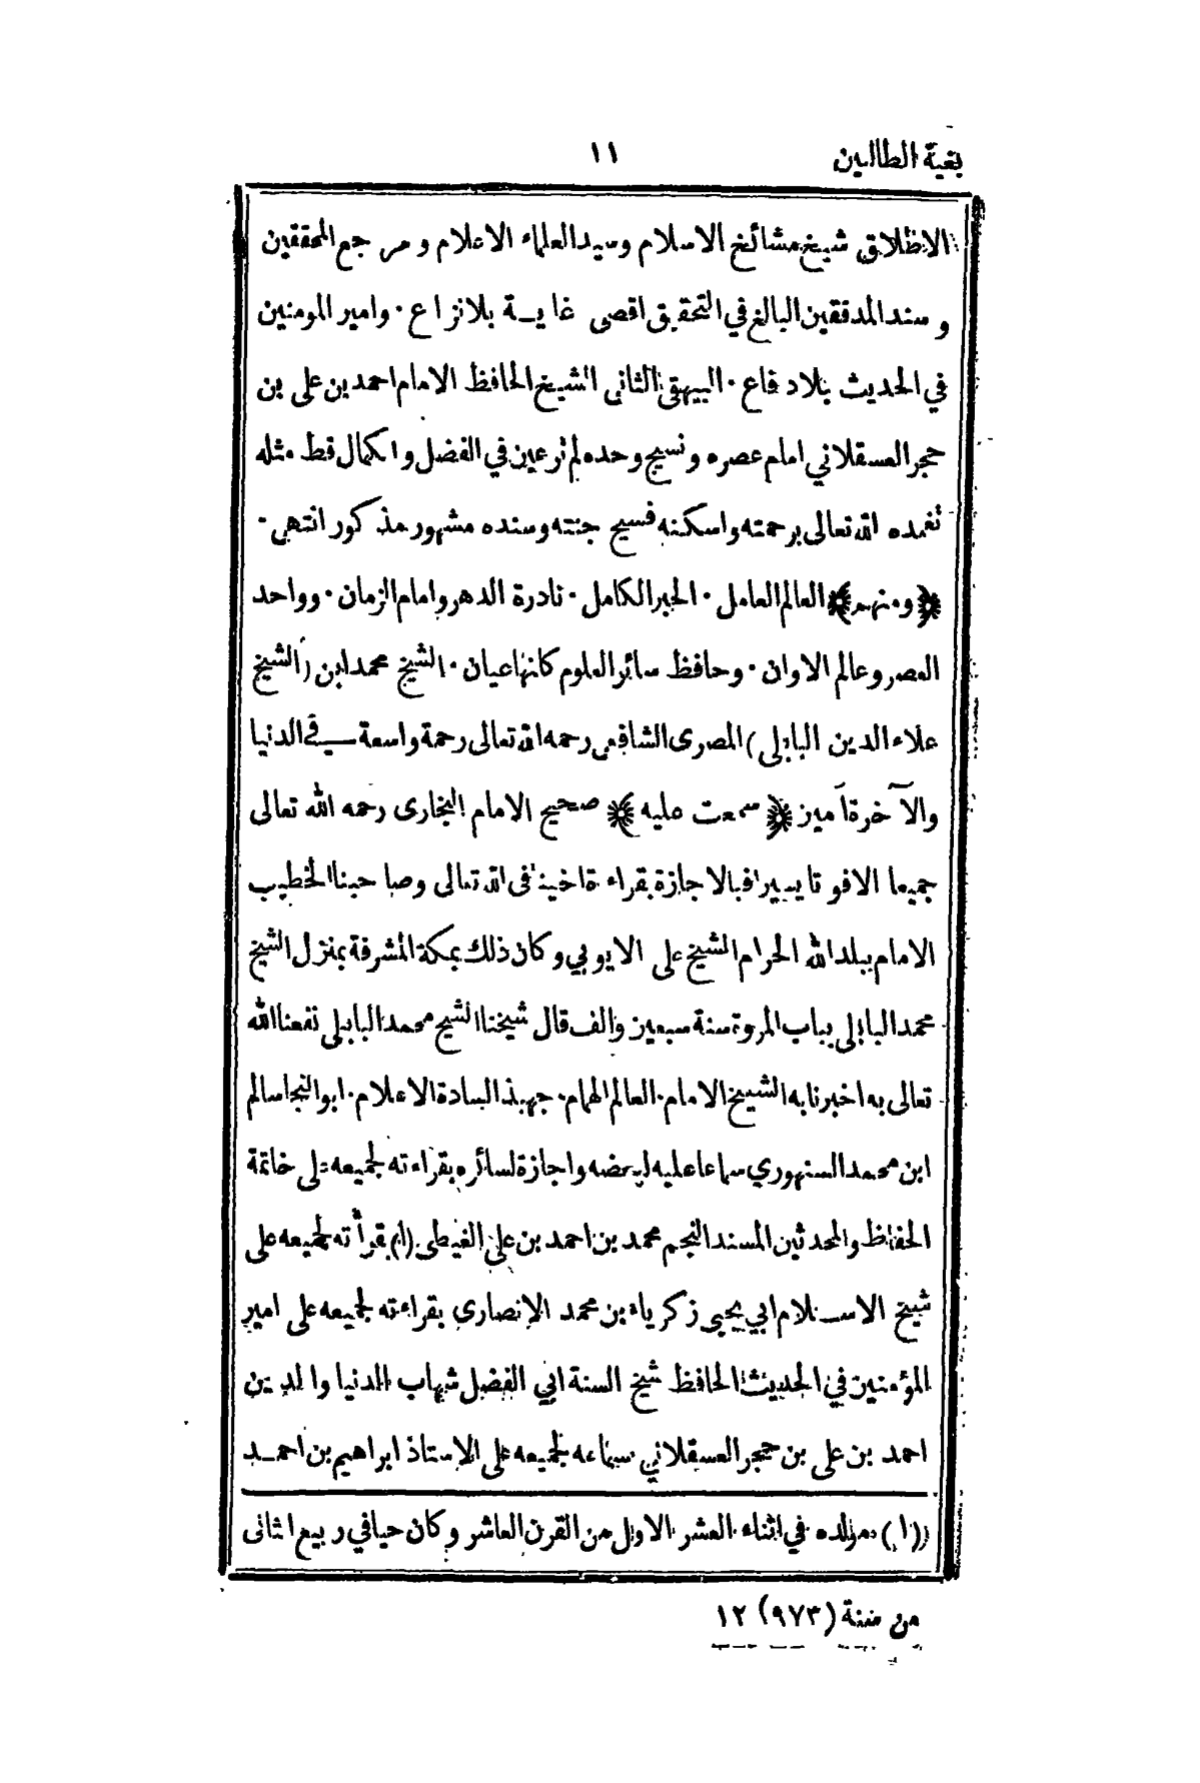 بغية الطالبين
١١
الاطلاق شيخ مشائخ الاسلام وسيد العلماء الاعلام ومرجع المحققين
وسند المدققين البالغ في التحقيق اقصى غاية بلانزاع · وامير المومنين
في الحديث بلاد فاع · البيهقى الثانى الشيخ الحافظ الامام احمد بن على بن
حجر العسقلاني امام عصره ونسيج وحده لم ترعين في الفضل والكمال قط مثله
تغمده الله تعالى برحمته واسكنه فسيح جنته وسنده مشهور مذكور انتهى ·
﴿ ومنهم ﴾ العالم العامل · الحبر الكامل · نادرة الدهر وامام الزمان · وواحد
العصر وعالم الاوان · وحافظ سائر العلوم كانهاعيان · الشيخ محمد ابن (الشيخ
علاء الدين البابلى) المصرى الشافعى رحمه الله تعالى رحمة واسعة في الدنيا
والآخرة آمين ﴿ سمعت عليه ﴾ صحيح الامام البخارى رحمه الله تعالى
جميعا الافوتا يسيرا فبالاجازة بقراءة اخينا في الله تعالى وصاحبنا الخطيب
الامام ببلد الله الحرام الشيخ على الايوبي وكان ذلك بمكة المشرفة بمنزل الشيخ
محمد البابلى بباب المروة سنة سبعين والف قال شيخنا الشيخ محمد البابلى نفعنا الله
تعالى به اخبرنا به الشيخ الامام · العالم الهمام · جهبذ السادة الاعلام · ابوالنجا سالم
ابن محمد السنهوري سماعا عليه لبعضه واجازة لسائره بقراءته لجميعه على خاتمة
الحفاظ والمحدثين المسند النجم محمد بن احمد بن على الغيطى (١) بقرأته لجميعه على
شيخ الاسلام ابي يحيى زكرياء بن محمد الانصارى بقراءته لجميعه على امير
المؤمنين في الحديث الحافظ شيخ السنة ابي الفضل شهاب الدنيا والدين
احمد بن على بن حجر العسقلاني سماعه لجميعه على الاستاذ ابراهيم بن احمد
(١) مولده في اثناء العشر الاول من القرن العاشر وكان حيا في ربيع الثانى
من سنة (٩٧٣) ١٢